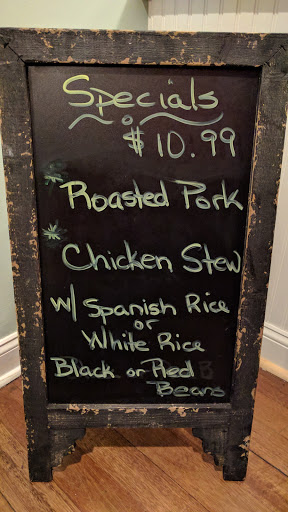 Specials
$10.99
* Roasted Pork
* Chicken Stew
w/ Spanish Rice
or
White Rice
Black or Red
Beans